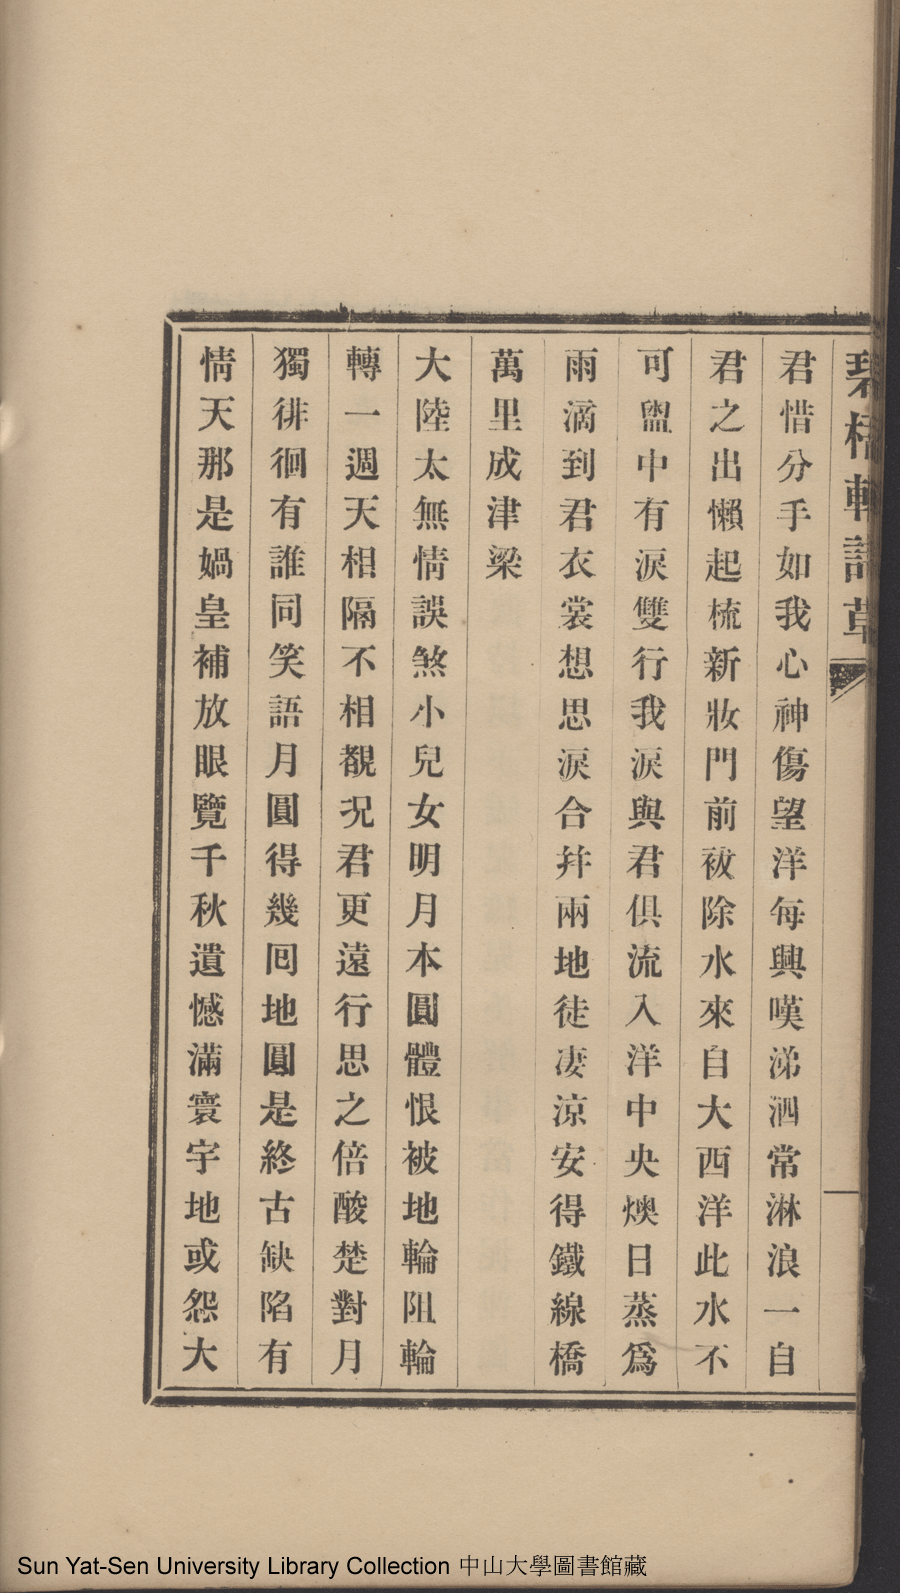 碧梧軒詩草
君惜分手如我心神傷望洋每興嘆涕泗常淋浪一自
君之出懶起梳新妝門前祓除水來自大西洋此水不
可盥中有淚雙行我淚與君俱流入洋中央燠日蒸為
雨滴到君衣裳想思淚合并兩地徒凄涼安得鐵線橋
萬里成津梁
大陸太無情誤煞小兒女明月本圓體恨被地輪阻輪
轉一週天相隔不相覩况君更遠行思之倍酸楚對月
獨徘徊有誰同笑語月圓得幾回地圓是終古缺陷有
情天那是媧皇補放眼覽千秋遺憾滿寰宇地或怨大
Sun Yat-Sen University Library Collection 中山大學圖書館藏